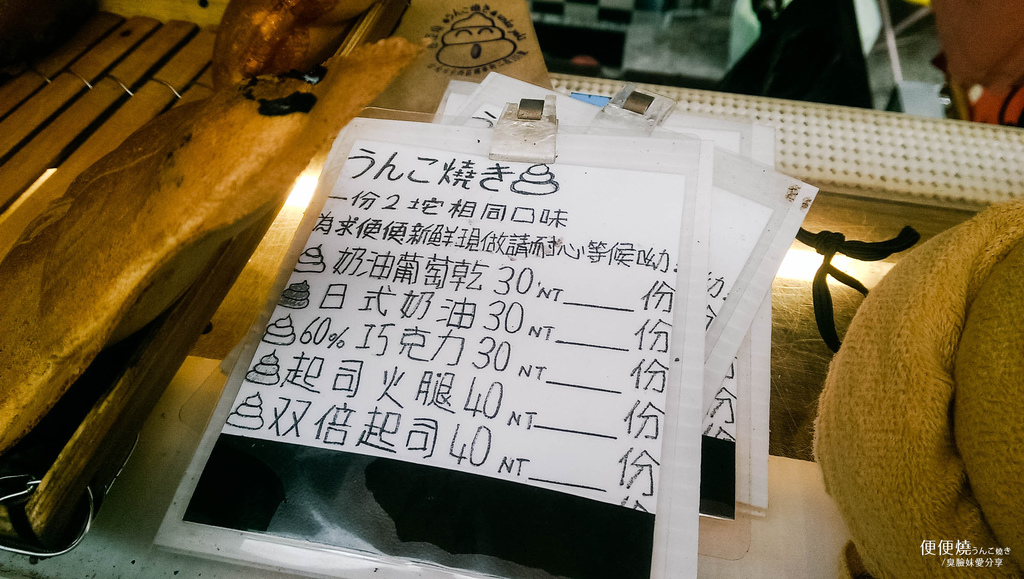 うんこ燒き
一份2坨相同口味
為求便便新鮮現做請耐心等候呦.
奶油葡萄乾 30 NT____份
日式奶油 30 NT____份
60% 巧克力 30 NT____份
起司火腿 40 NT____份
双倍起司 40 NT____份
便便燒うんこ燒き
/臭臉妹愛分享